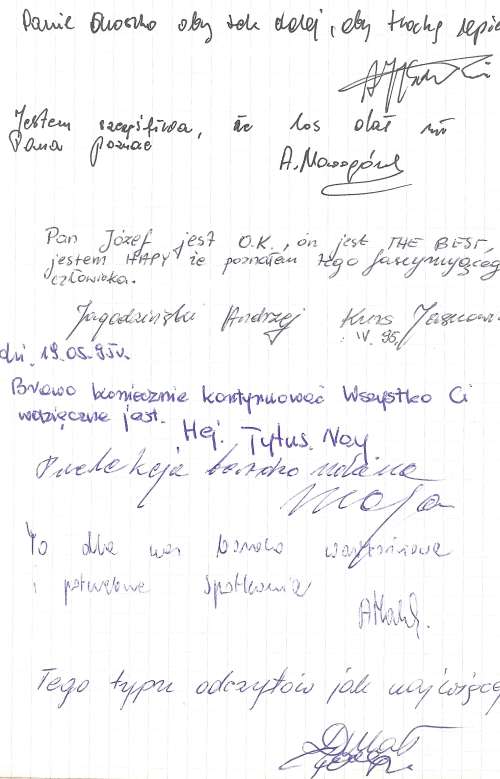 Panie oby tak dalej, aby trochę
Jestem szczęśliwa, że los dał mi
Pana poznać
A. Nowogórsk
Pan Józef jest O.K., on jest THE BEST,
jestem HAPY że poznałem tego fascynującego
człowieka.
Jagodziński Andrzej Kurs
IV. 95
dn. 19.05.95r.
Brawo koniecznie kontynuować Wszystko Ci
wdzięczne jest.
Hej. Tytus. Noy
Prelekcja bardzo udana
Maja
To dla nas bardzo wartościowe
i potrzebne spotkania
Tego typu odczytów jak najwięcej